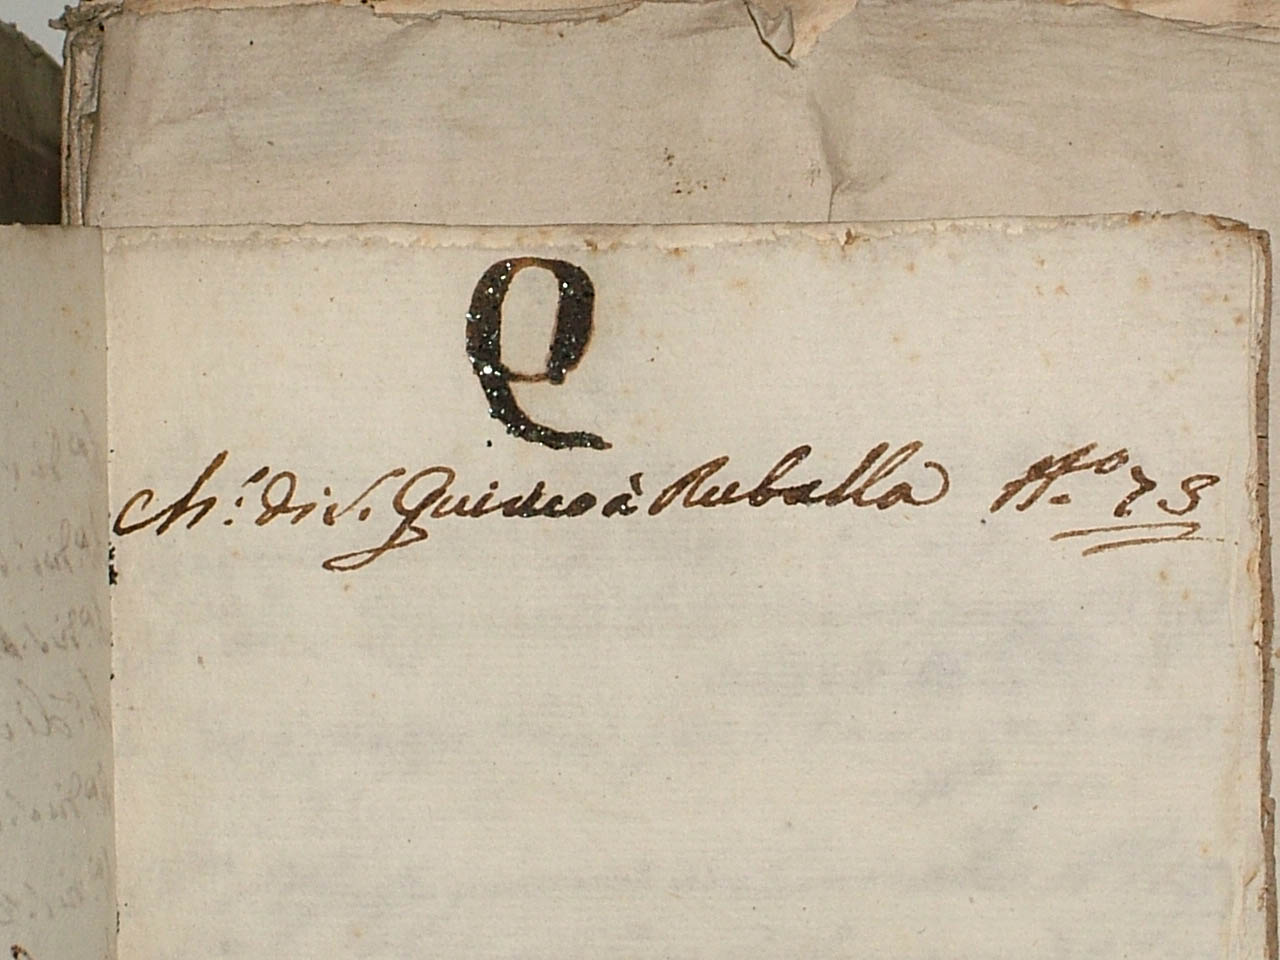 Q
Ch.ª di S. Quirico à Ruballa N.º 73